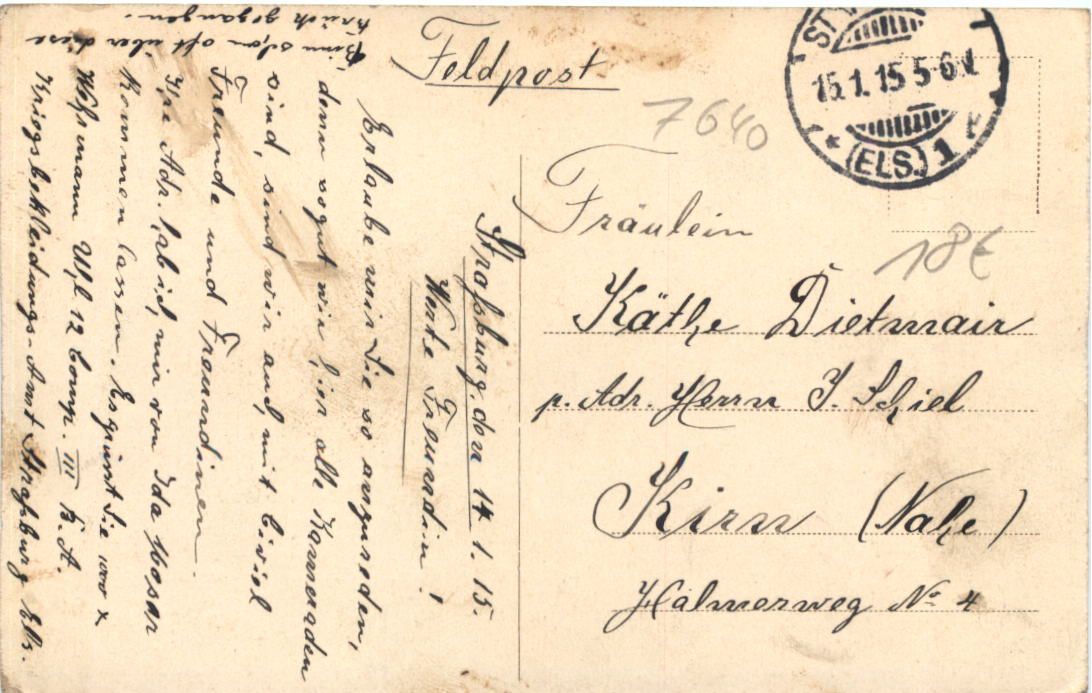 Feldpost
ST
15.1.15 5-6 N
* (ELS.) 1 *
7640
18€
Fräulein
Käthe Dietmair
p. Adr. Herrn J. Schiel
Kirn (Nahe)
Halmerweg No 4
Straßburg, den 14. 1. 15.
Werte Freundin!
Erlaube mir Sie so anzureden,
denn sogut wir hier alle Kameraden
sind, sind wir auch mit Civiel
Freunde und Freundinen.
Ihre Adr. hab ich mir von Ida
kommen lassen. Es grüsst Sie 1000 x
Wehrmann Uhl 12 Comp. III B. A.
Kriegsbekleidungs-Amt Straßburg Els.
Binn schon oft über diese
Brück gegangen.